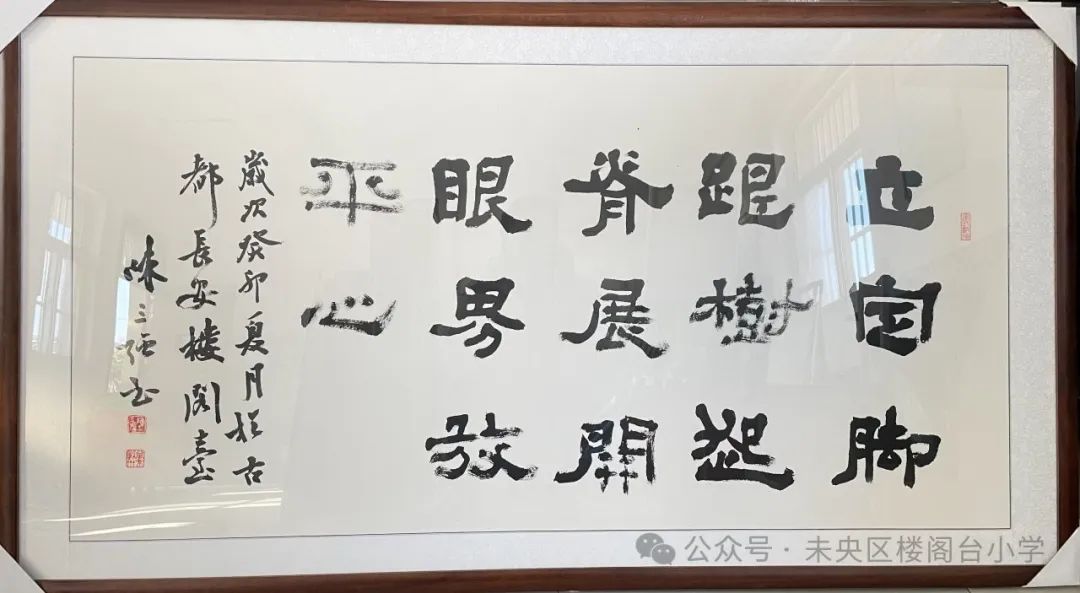 立定脚
跟樹起
脊展開
眼界放
平心
歲次癸卯夏月於古
都長安樓閣臺
三书
公众号 · 未央区楼阁台小学